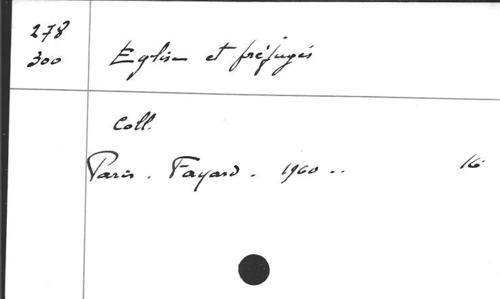 278
300 Eglise et préjugés
Coll.
Paris. Fayard. 1960.. 16